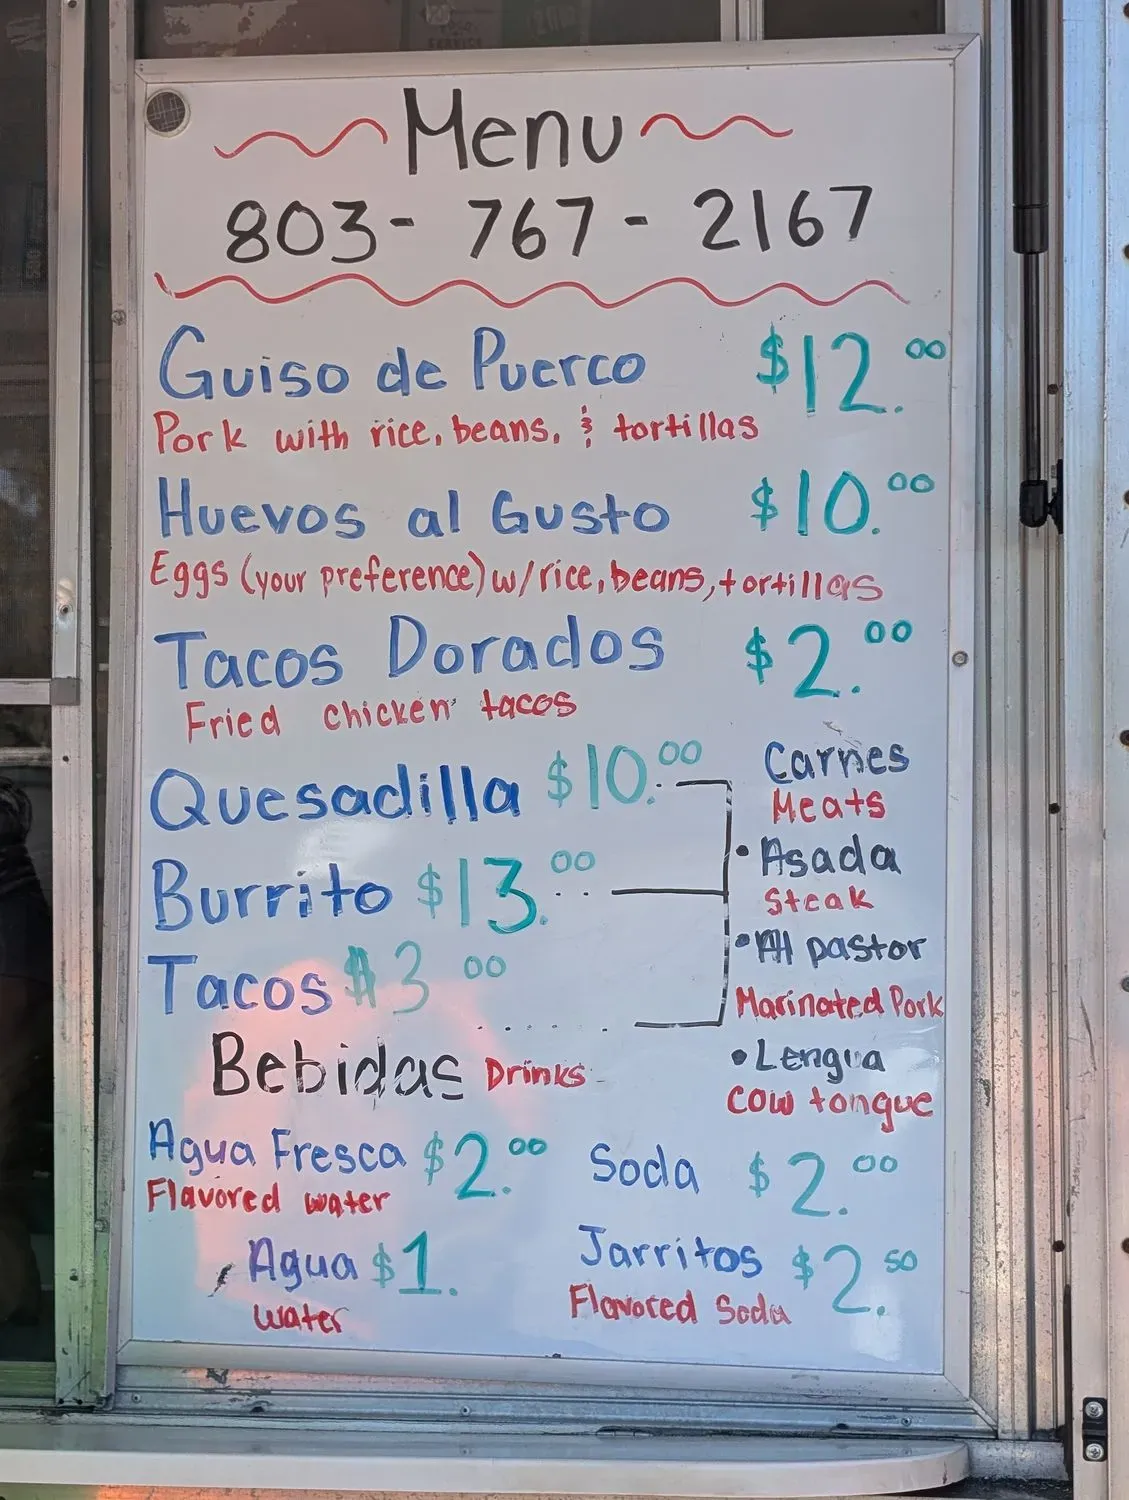 Menu
803-767-2167
Guiso de Puerco $12.00
Pork with rice, beans, & tortillas
Huevos al Gusto $10.00
Eggs (your preference) w/rice, beans, tortillas
Tacos Dorados $2.00
Fried chicken tacos
Quesadilla $10.00
Burrito $13.00
Tacos $3 00
Carnes
Meats
• Asada
Steak
• Al pastor
Marinated Pork
• Lengua
Cow tongue
Bebidas Drinks
Agua Fresca $2.00
Flavored water
Soda $2.00
Agua $1.
water
Jarritos $2.50
Flavored Soda